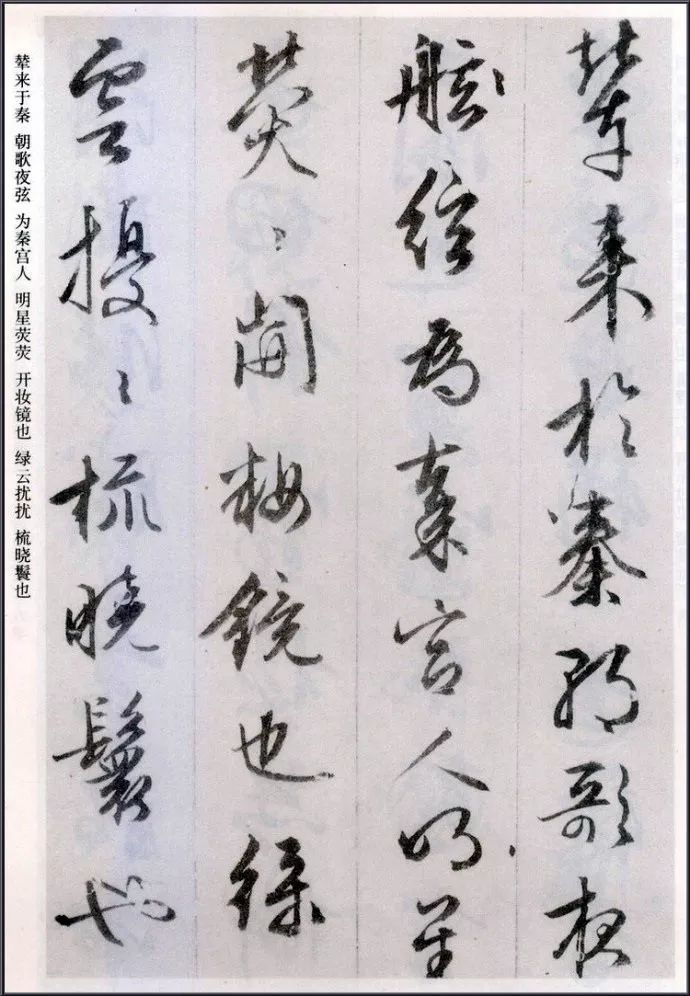 輦来於秦朝歌夜
舷絃為秦宫人明星
熒〻開粧鏡也緑
雲擾〻梳曉鬟也
辇来于秦 朝歌夜弦 为秦宫人 明星荧荧 开妆镜也 绿云扰扰 梳晓鬟也